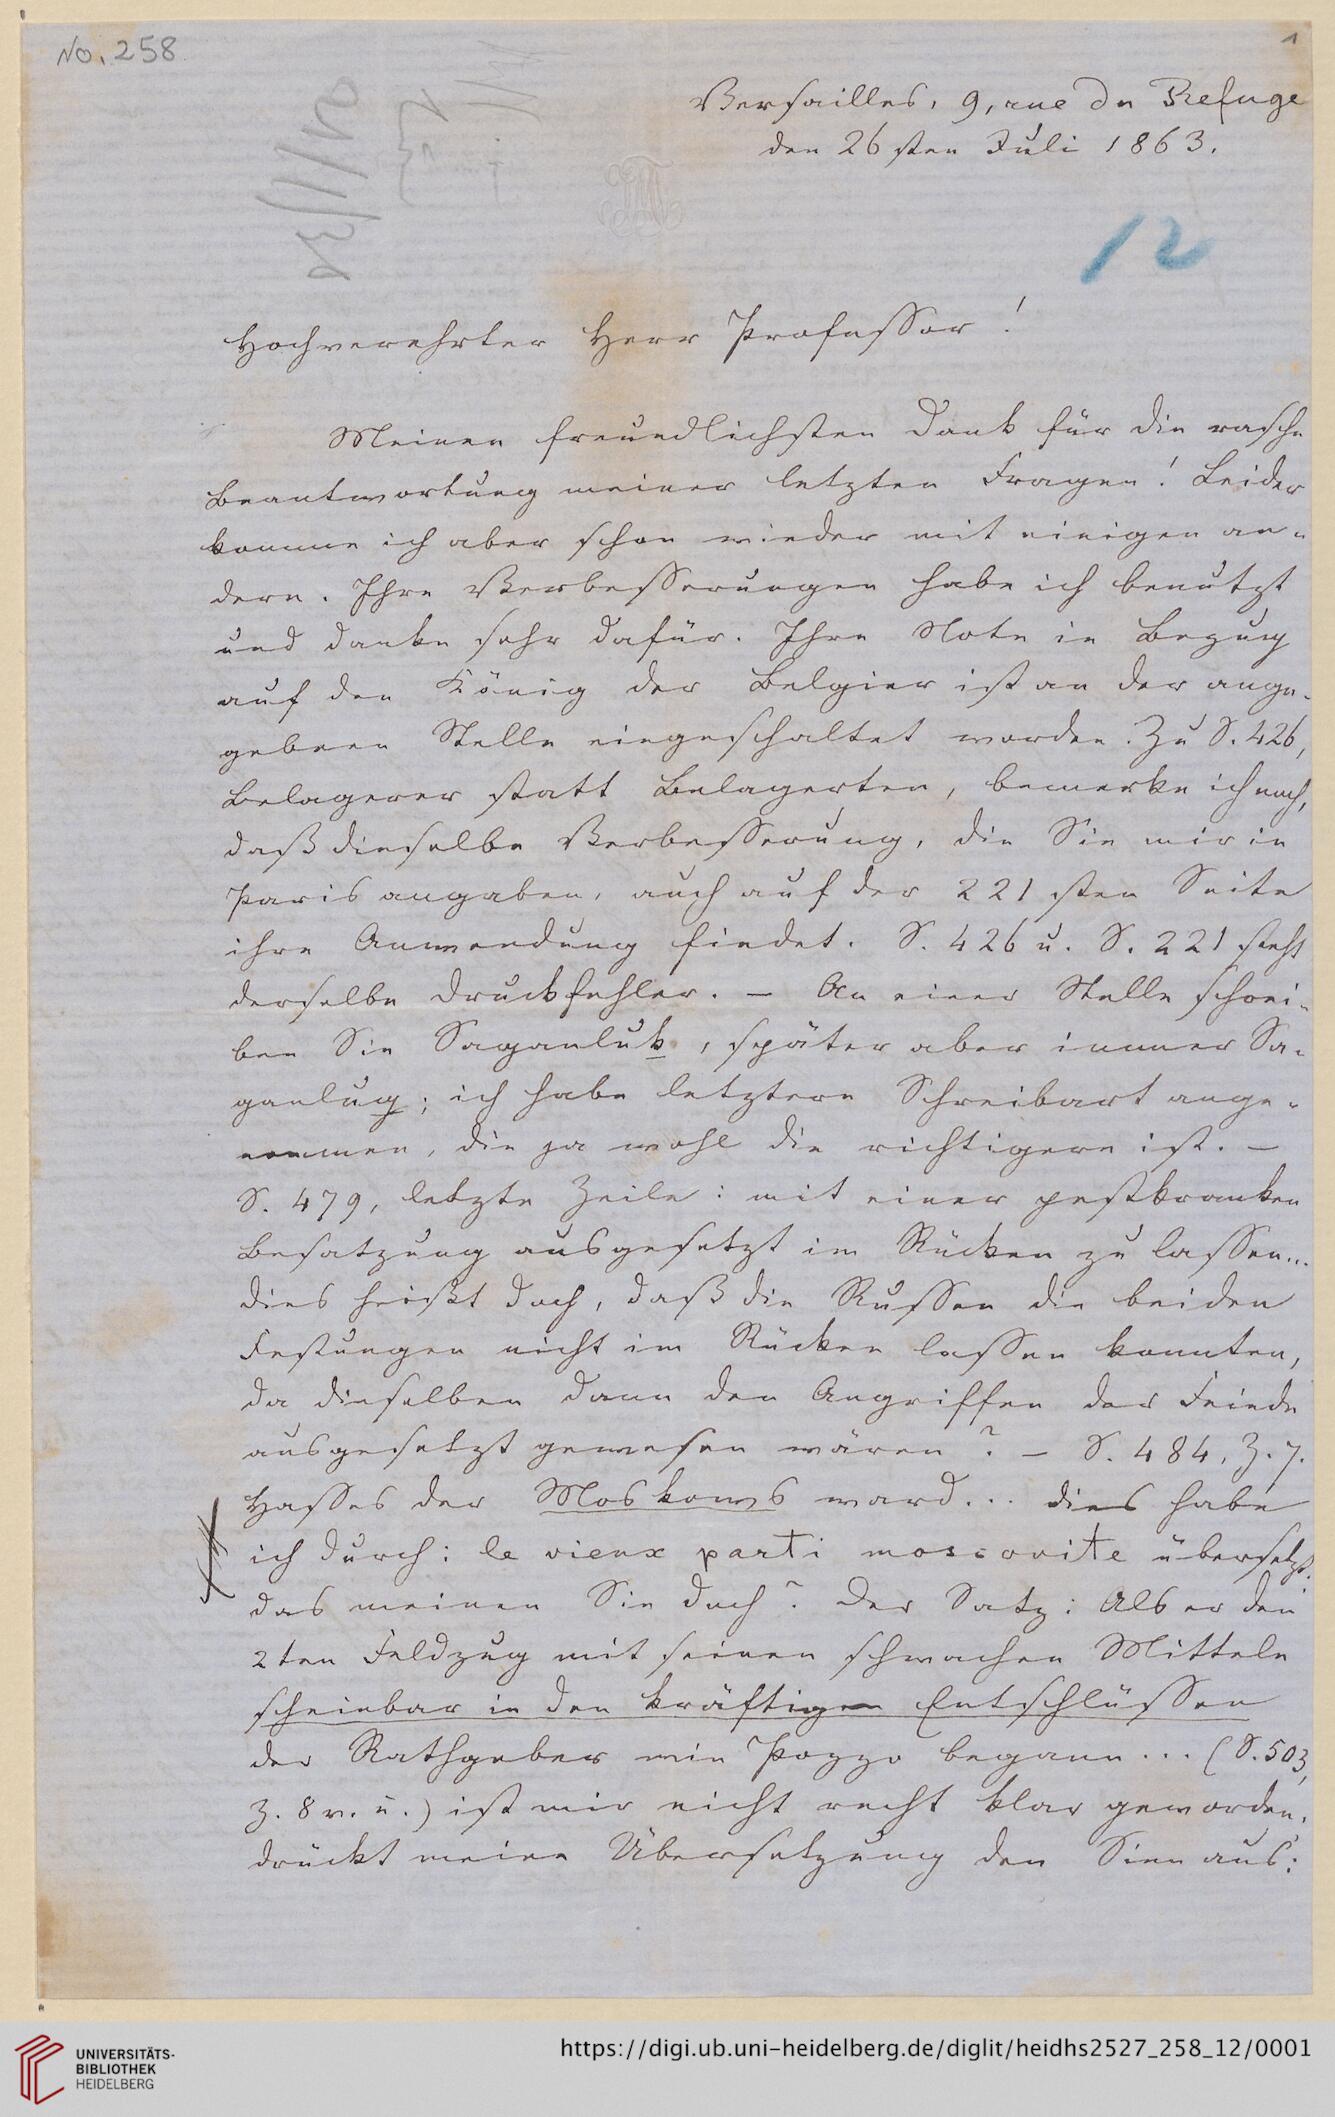 No. 258
1
Versailles, 9, rue du Refuge
den 26sten Juli 1863.
12
Hochverehrter Herr Professor!
Meinen freundlichsten Dank für die rasche
Beantwortung meiner letzten Fragen! Leider
komme ich aber schon wieder mit einigen an-
dern. Ihre Verbesserungen habe ich benutzt
und danke sehr dafür. Ihre Note in Bezug
auf den König der Belgier ist an der ange-
gebenen Stelle eingeschaltet worden. Zu S. 426,
Belagerer statt Belagerten, bemerke ich noch,
daß dieselbe Verbesserung, die Sie mir in
Paris angaben, auch auf der 221sten Seite
ihre Anwendung findet. S. 426 u. S. 221 steht
derselbe Druckfehler. – An einer Stelle schrei-
ben Sie Saganluk, später aber immer Sa-
ganlug; ich habe letztere Schreibart ange-
nommen, die ja wohl die richtigere ist. –
S. 479, letzte Zeile: mit einer pestkranken
Besatzung ausgesetzt im Rücken zu lassen...
dies heißt doch, daß die Russen die beiden
Festungen nicht im Rücken lassen konnten,
da dieselben dann den Angriffen der Feinde
ausgesetzt gewesen wären? – S. 484, Z. 7.
Hasses der Moskows ward... dies habe
ich durch: le vieux parti moscovite übersetzt.
das meinen Sie doch? Der Satz: Als er den
2ten Feldzug mit seinen schwachen Mitteln
scheinbar in den kräftigen Entschlüssen
der Rathgeber wie Pozzo begann... (S. 503,
Z. 8 v. u.) ist mir nicht recht klar geworden.
drückt meine Übersetzung den Sinn aus:
UNIVERSITÄTS-
BIBLIOTHEK
HEIDELBERG
https://digi.ub.uni-heidelberg.de/diglit/heidhs2527_258_12/0001